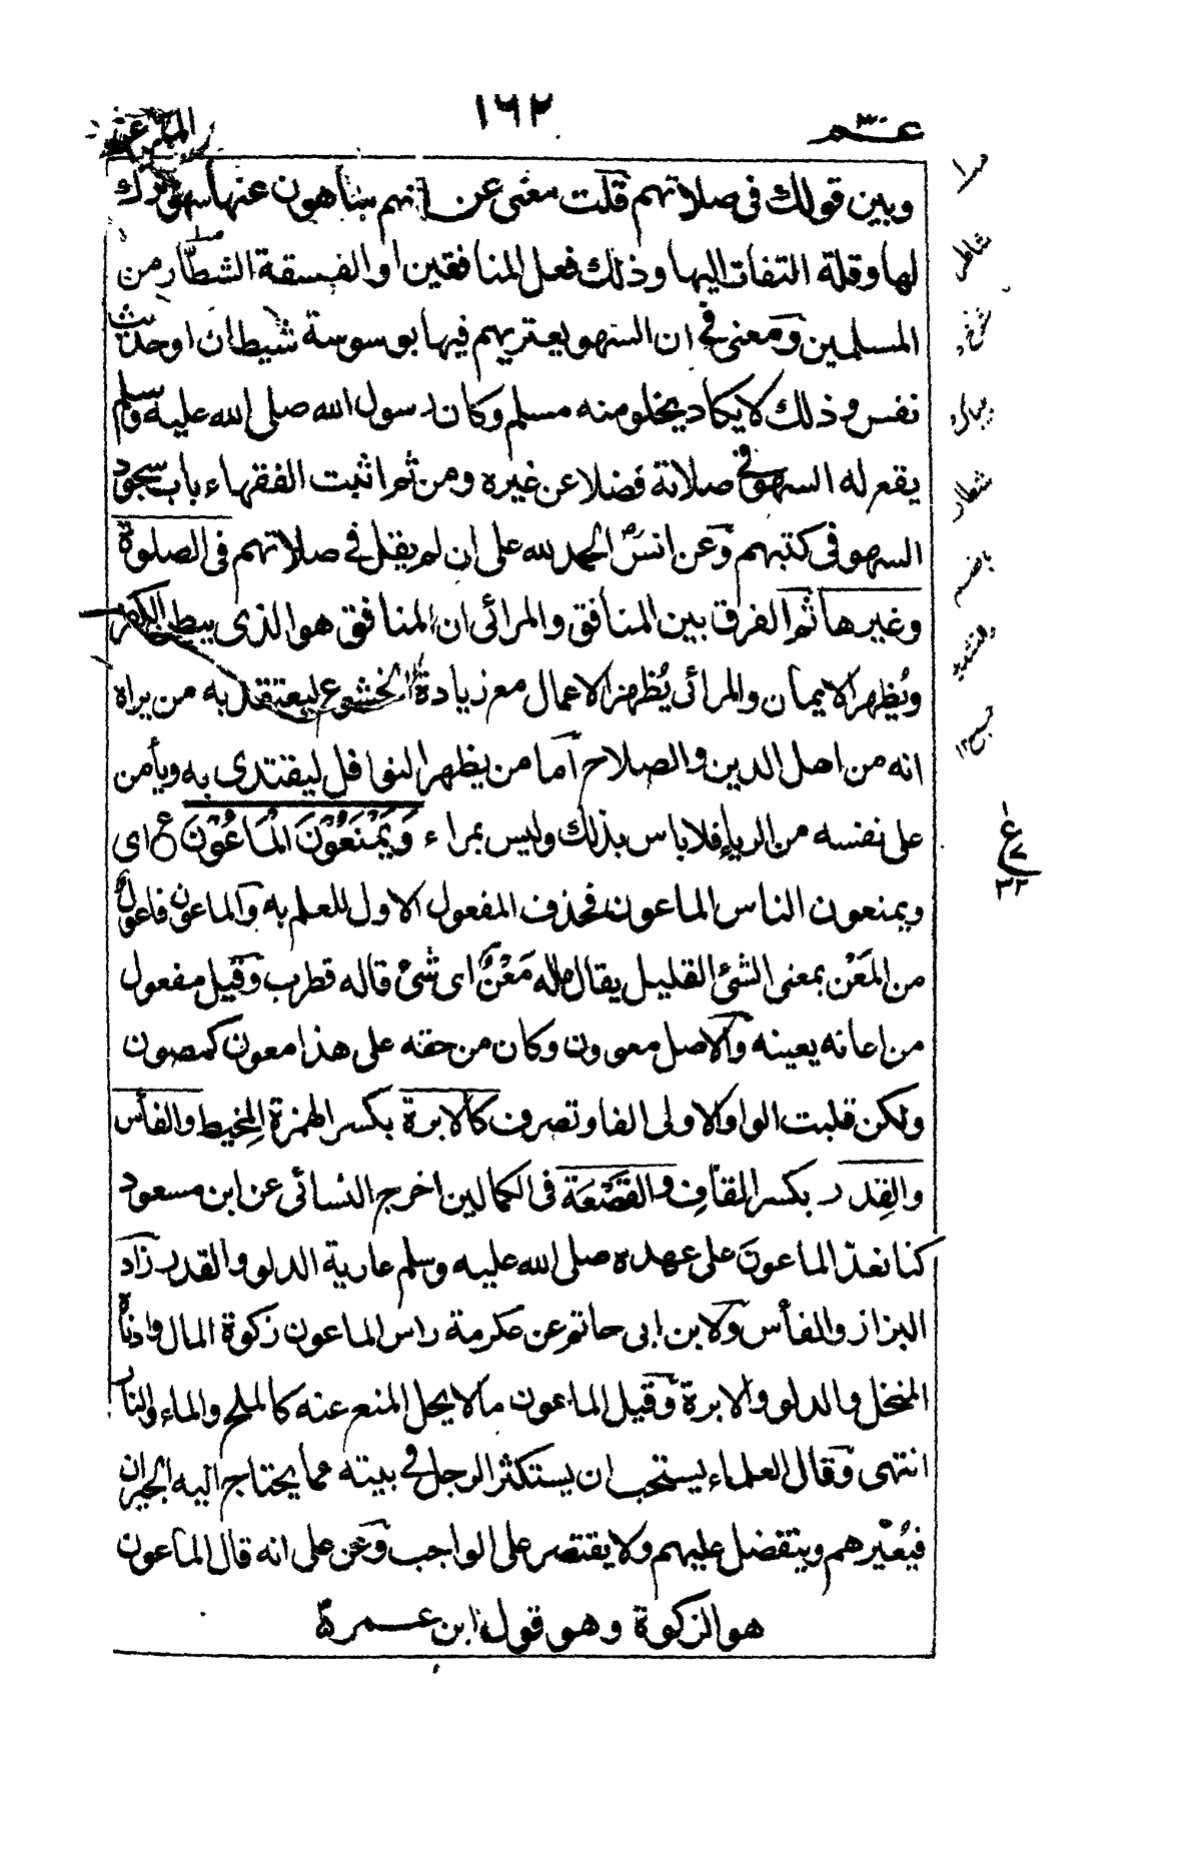 عم
١٦٢
وبين قولك فى صلاتهم قلت معنى عن انهم ساهون عنها سهو ترك
لها وقلة التفات اليها وذلك فعل المنافقين او الفسقة الشطّار من
المسلمين ومعنى فى ان السهو يعتريهم فيها بوسوسة شيطان او حديث
نفس وذلك لا يكاد يخلو منه مسلم وكان رسول الله صلى الله عليه وسلم
يقع له السهو فى صلاته فضلا عن غيره ومن ثم اثبت الفقهاء باب سجود
السهو فى كتبهم وعن انسؓ الحمد لله على ان لم يقل فى صلاتهم فى الصلوة
وغيرها ثم الفرق بين المنافق والمرائى ان المنافق هو الذى يبطن الكفر
ويُظهر الايمان والمرائى يُظهر الاعمال مع زيادة الخشوع ليعتقد به من يراه
انه من اهل الدين والصلاح اما من يظهر النوافل ليقتدى به ويأمن
على نفسه من الرياء فلا باس بذلك وليس بمراء وَيَمْنَعُوْنَ الْمَاعُوْنَ ع اى
ويمنعون الناس الماعون فحذف المفعول الاول للعلم به والماعون فاعول
من المَعْن بمعنى الشئ القليل يقال ماله مَعْنٌ اى شئ قاله قطرب وقيل مفعول
من اعانه يعينه والاصل معوون وكان من حقه على هذا معون كمصون
ولكن قلبت الواو الاولى الفا وتصرف كالابرة بكسر الهمزة المِخيط والفأس
والقِدر بكسر القاف والقَصْعَة فى الكمالين اخرج النسائى عن ابن مسعود
كنا نعدّ الماعونَ على عهده صلى الله عليه وسلم عارية الدلو والقدر زاد
البزاز والفأس ولابن ابى حاتم عن عكرمة راس الماعون زكوة المال وادناه
المنخل والدلو والابرة وقيل الماعون ما لا يحل المنع عنه كالملح والماء والنار
انتهى وقال العلماء يستحب ان يستكثر الرجل فى بيته مما يحتاج اليه الجيران
فيُعيرهم ويتفضل عليهم ولا يقتصر على الواجب وعن على انه قال الماعون
هو الزكوة وهو قول ابن عمرة
شاطر
شوخ و
بيباك
شطار
بالضم
والتشديد
جمع ١٢
ع
٧
٣٢